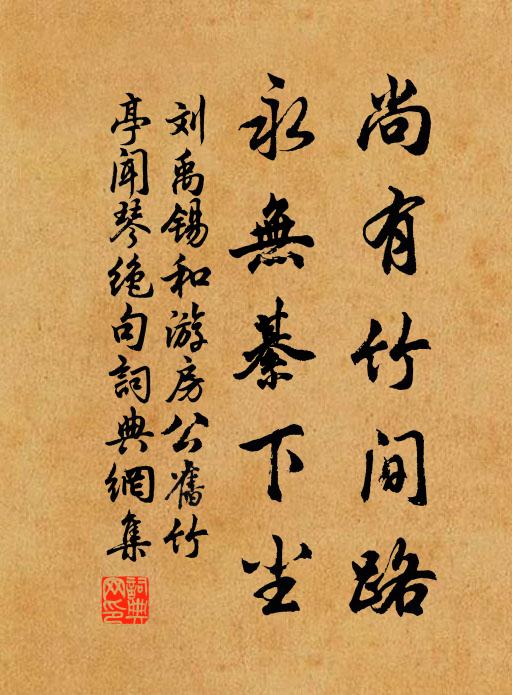 尚有竹间路
永無綦下尘
刘禹锡和游房公舊竹
亭闻琴绝句詞典網集
詞典網印